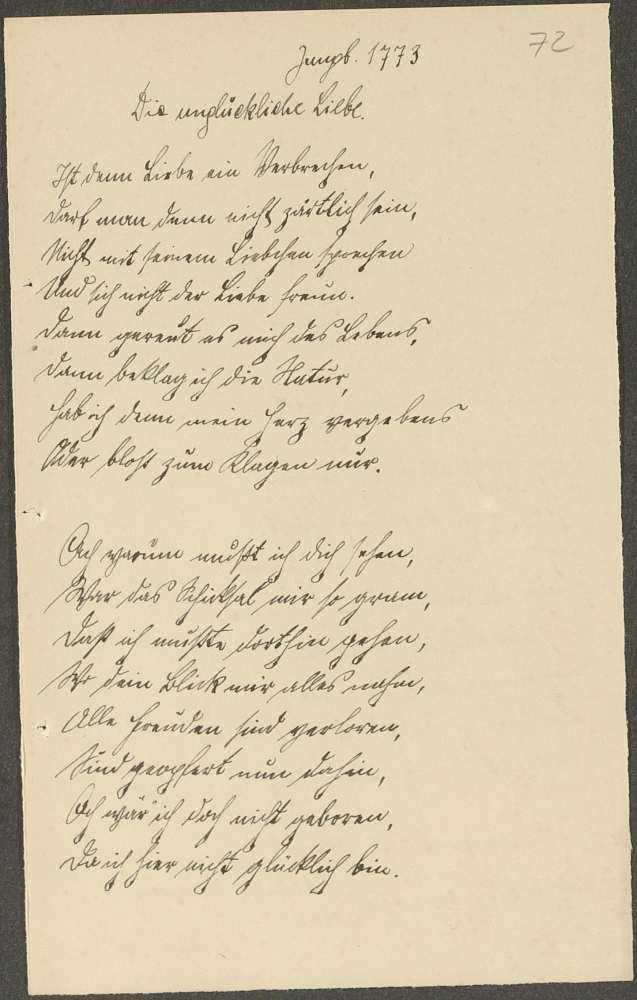 72
Jungb. 1773
Die unglückliche Liebe.
Ist denn Liebe ein Verbrechen,
Darf man denn nicht zärtlich sein,
Nicht mit seinem Liebchen sprechen
Und sich nicht der Liebe freun.
Dann gereut es mich des Lebens,
Dann beklag ich die Natur,
Hab ich denn mein Herz vergebens
Oder bloß zum Klagen nur.
Ach warum mußt ich dich sehen,
War das Schicksal mir so gram,
Daß ich mußte dorthin gehen,
Wo dein Blick mir alles nahm,
Alle Freuden sind verloren,
Sind geopfert nun dahin,
Ach wär' ich doch nicht geboren,
Da ich hier nicht glücklich bin.